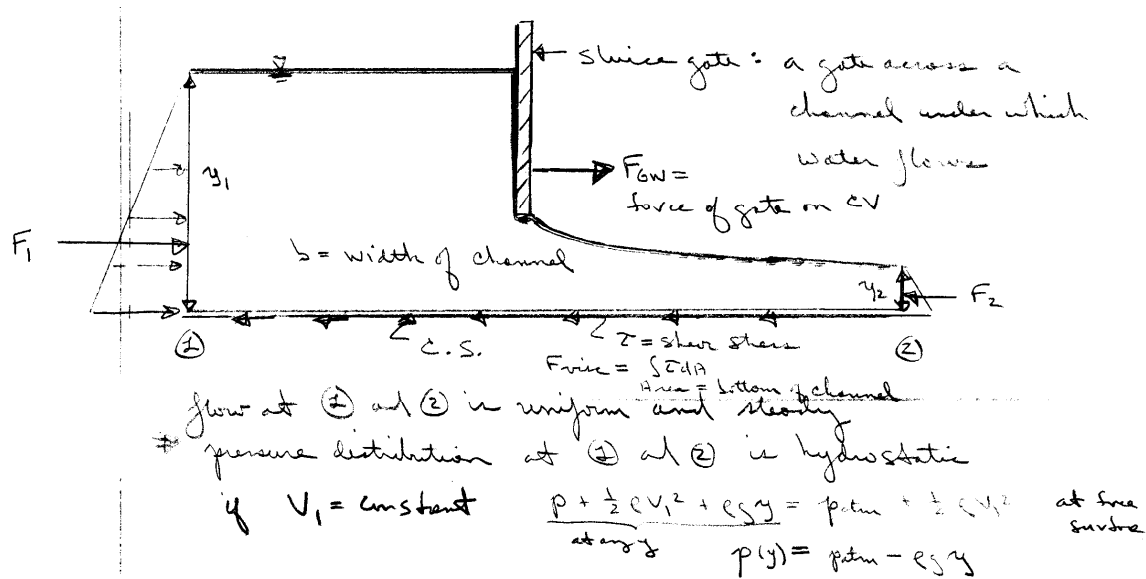 sluice gate : a gate across a
channel under which
water flows
F_GW =
force of gate on CV
y₁
F₁
b = width of channel
y₂
F₂
①
C.S.
τ = shear stress
②
F visc = ∫τdA
Area = bottom of channel
flow at ① and ② is uniform and steady
⇒ pressure distribution at ① and ② is hydrostatic
if V₁ = constant p + ½ρV₁² + ρgy = patm + ½ρV₁² at free
surface
at any y
p(y) = patm - ρgy